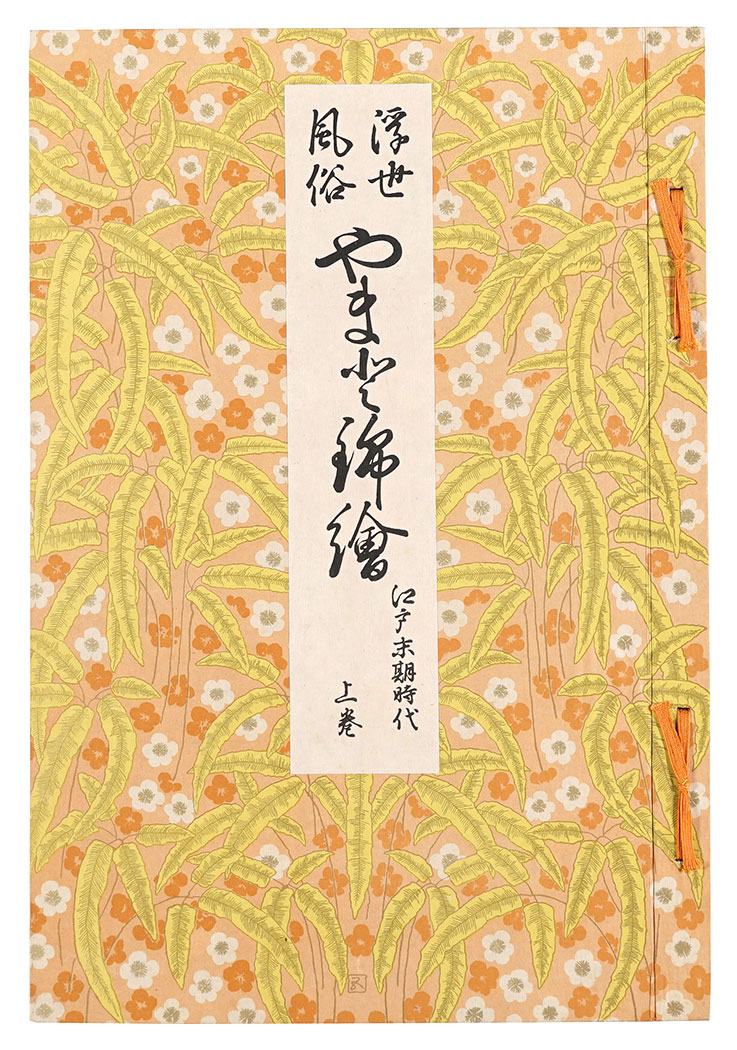 浮世
風俗
やまと錦繪
江戸末期時代
上巻